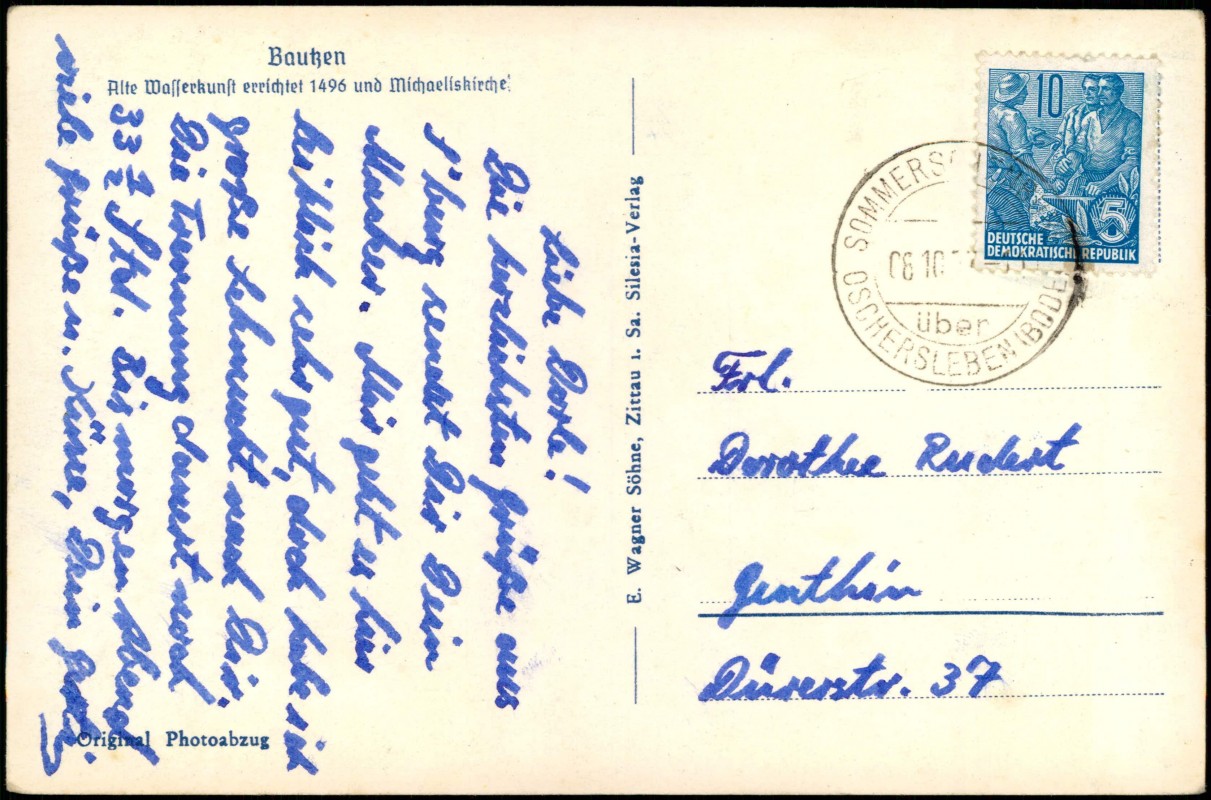 Bautzen
Alte Wasserkunst errichtet 1496 und Michaeliskirche
Liebe Dorle!
Die herzlichsten Grüße aus
S'burg sendet Dir Dein
Mir geht es hier
leiblich sehr gut, doch habe ich
große Sehnsucht nach Dir.
Die Trennung dauert noch
33 1/2 Std. Bis morgen Abend
viele Grüße u. Küsse, Dein
Original Photoabzug
E. Wagner Söhne, Zittau i. Sa. Silesia-Verlag
10
5
DEUTSCHE
DEMOKRATISCHE REPUBLIK
SOMMERS
08.10.
über
OSCHERSLEBEN (BODE)
Frl.
Dorothee Rudert
Genthin
Dürerstr. 37